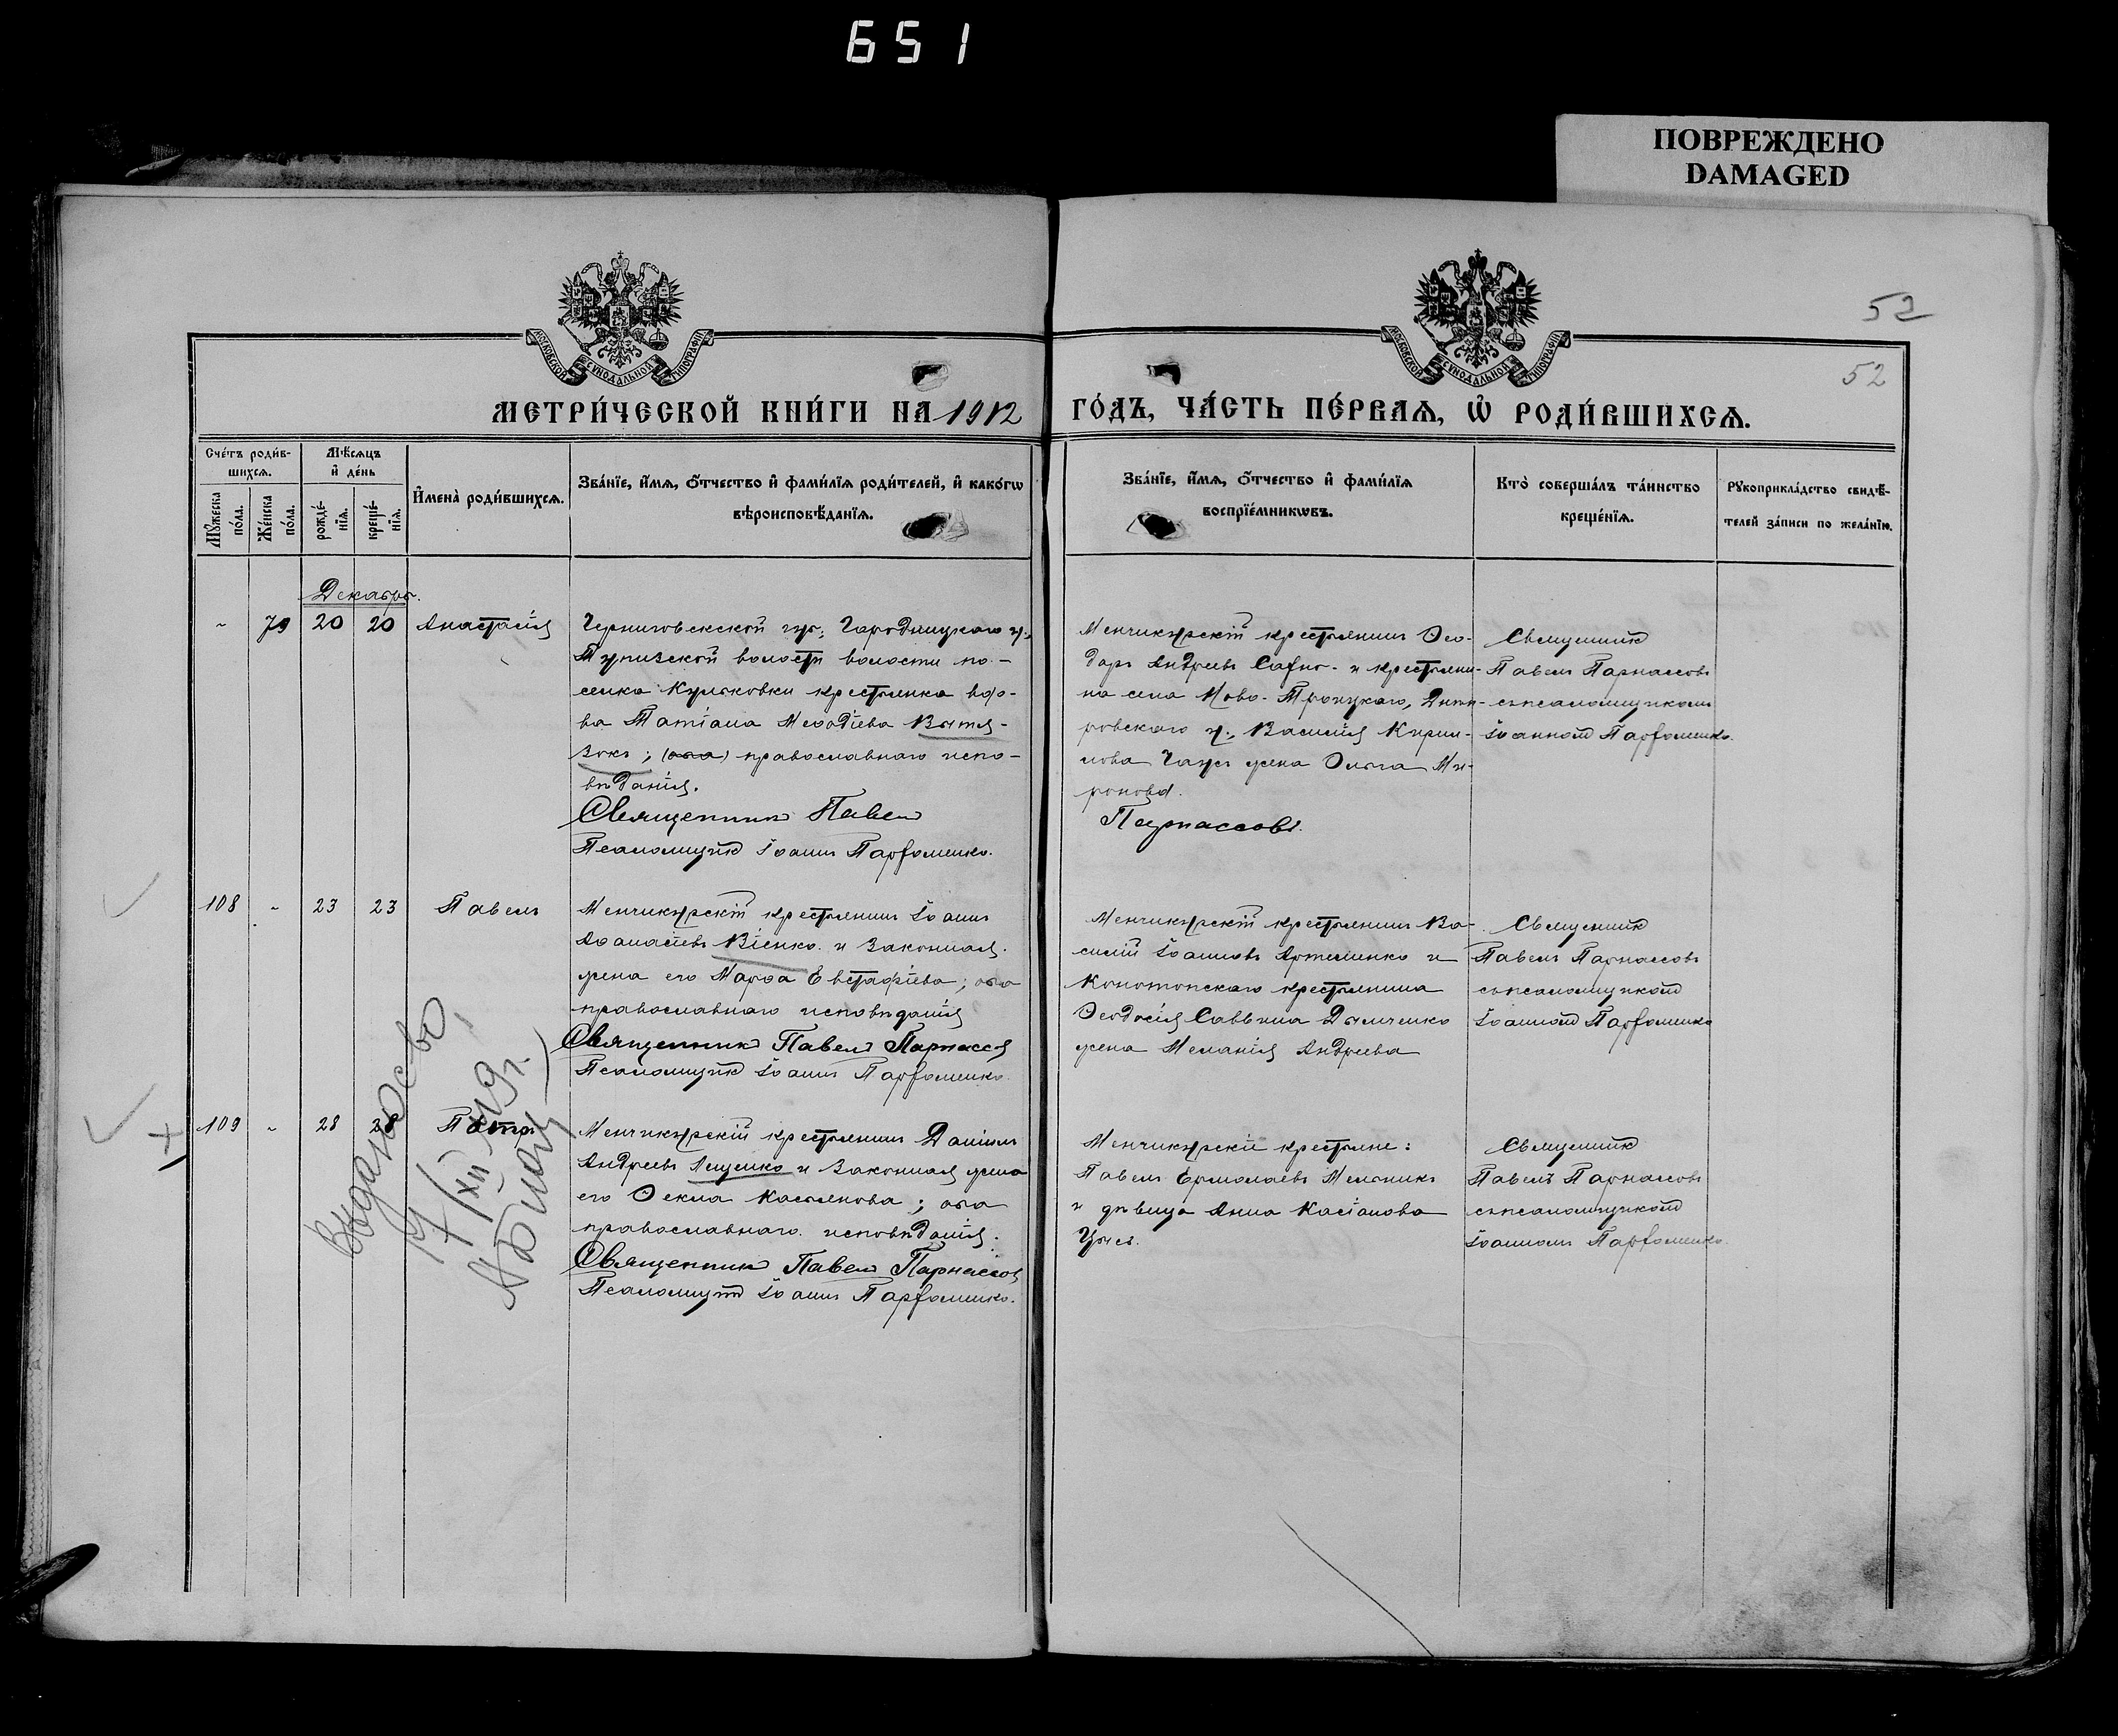 651
ПОВРЕЖДЕНО
DAMAGED
52
52
МОСКОВСКОЙ СѴНОДАЛЬНОЙ ТИПОГРАФІИ
МОСКОВСКОЙ СѴНОДАЛЬНОЙ ТИПОГРАФІИ
МЕТРИ́ЧЕСКОЙ КНИ́ГИ НА 1912 ГО́ДЪ, ЧА́СТЬ ПЕ́РВАЯ, Ѡ РОДИ́ВШИХСЯ.
Сче́тъ роди́в-
шихся.
Мꙋ́жеска по́ла.
Же́нска по́ла.
Мѣ́сяцъ и҆ де́нь
рожде́-нїя.
креще́-нїя.
И҆мена̀ роди́вшихся.
Зва́нїе, и҆́мя, ѻ҆́тчество и҆ фами́лїя роди́телей, и҆ како́гѡ
вѣроисповѣ́данїя.
Зва́нїе, и҆́мя, ѻ҆́тчество и҆ фами́лїя
воспрїе́мникѡвъ.
Кто̀ соверша́лъ та́инство
креще́нїя.
Рꙋкоприкла́дство свидѣ́-
телей за́писи по жела́нїю.
Декабрь.
- 79 20 20 Анастасія
Черниговской губ., Городницкаго у.,
Тупиской волости волости по-
селка Куликовки крестьянка вдо-
ва Татіана Меѳодіева Вытя-
зокъ; (оба) православнаго испо-
вѣданія.
Священникъ Павелъ
Псаломщикъ Іоаннъ Парфоменко.
Менчикурскій крестьянинъ Ѳео-
доръ Андреевъ Сафно- и крестьяни-
на села Ново-Троицкаго, Днѣп-
ровскаго у., Василія Кирил-
лова Гаусъ жена Ольга Ми-
ронова.
Парнассовъ.
Священникъ
Павелъ Парнассовъ
съ псаломщикомъ
Іоанномъ Парфоменко.
108 - 23 23 Павелъ
Менчикурскій крестьянинъ Іоаннъ
Аѳанасіевъ Віенко и законная
жена его Марѳа Евстафіева; оба
православнаго исповѣданія
Священникъ Павелъ Парнассов
Псаломщикъ Іоаннъ Парфоменко.
Менчикурскій крестьянинъ Ва-
силій Іоанновъ Артеменко и
Конотопскаго крестьянина
Ѳеодосія Саввина Дымченко
жена Меланія Андреева
Священникъ
Павелъ Парнассовъ
съ псаломщикомъ
Іоанномъ Парфоменко
109 - 28 28 Петръ
Менчикурскій крестьянинъ Даніилъ
Андреевъ Лещенко и законная жена
его Ѳекла Касьянова; оба
православнаго исповѣданія.
Священникъ Павелъ Парнассов
Псаломщикъ Іоаннъ Парфоменко.
Менчикурскіе крестьяне:
Павелъ Ермолаевъ Мельникъ
и дѣвица Анна Касіанова
Священникъ
Павелъ Парнассовъ
съ псаломщикомъ
Іоанномъ Парфоменко.
Выдано св-во